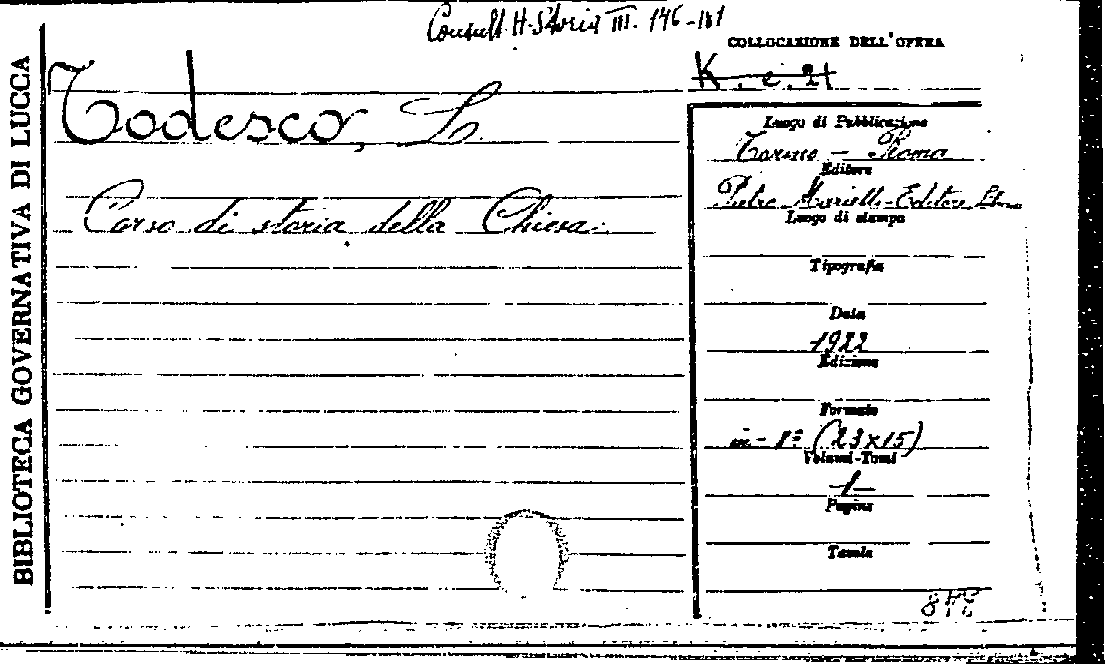 Consult. H. Storia III. 146-181
COLLOCAZIONE DELL'OPERA
K. e. 21
BIBLIOTECA GOVERNATIVA DI LUCCA
Todesco, L.
Corso di storia della Chiesa.
Luogo di Pubblicazione
Torino - Roma
Editore
Pietro Marietti-Editore
Luogo di stampa
Tipografia
Data
1922
Edizione
Formato
in-8º (23x15)
Volumi-Tomi
1
Pagine
Tavole